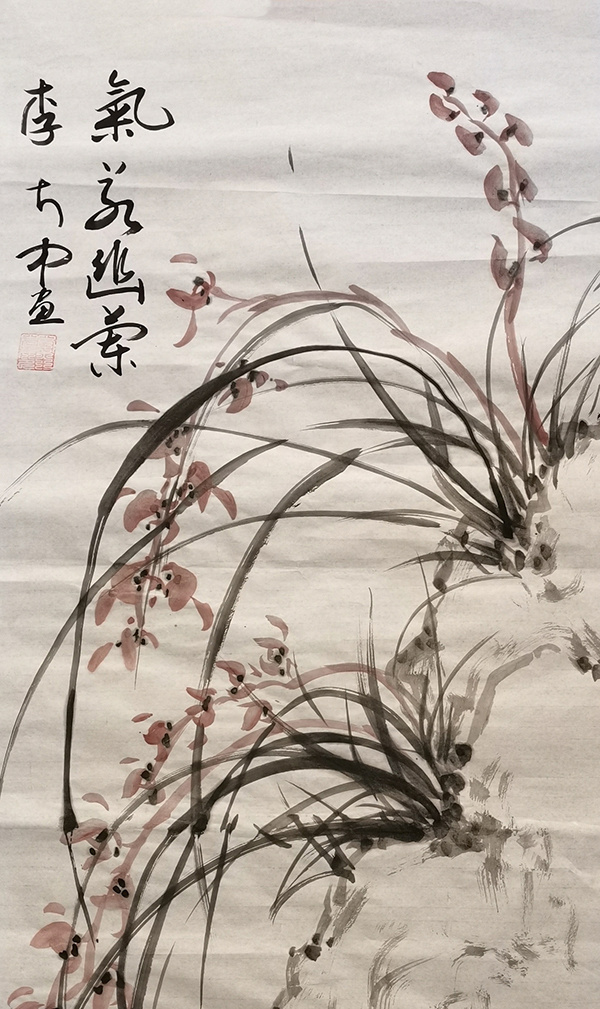 氣若幽蘭
李 中畫